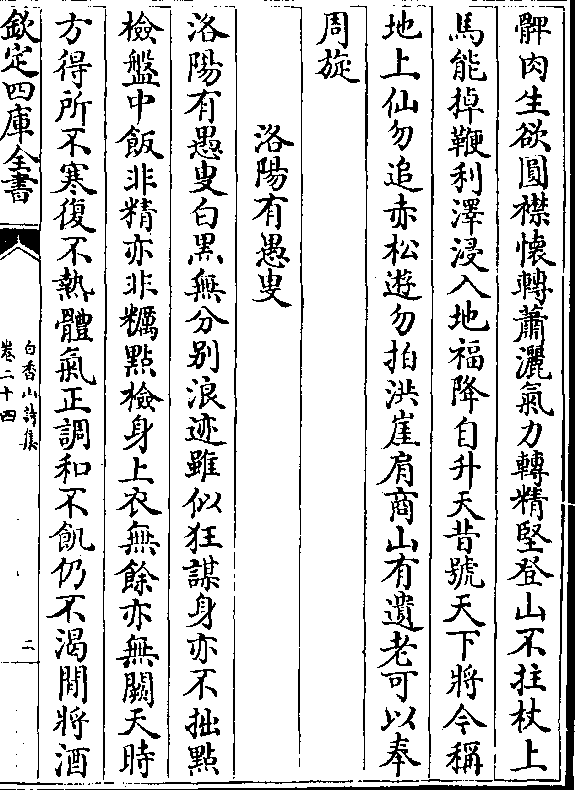 髀肉生欲圓襟懐轉蕭灑氣力轉精堅登山不拄杖上
馬能掉鞭利澤浸入地福降自升天昔號天下將今稱
地上仙勿追赤松遊勿拍洪崖肩商山有遺老可以奉
周旋
洛陽有愚叟
洛陽有愚叟白黒無分别浪迹雖似狂謀身亦不拙點
檢盤中飯非精亦非糲點檢身上衣無餘亦無闕天時
方得所不寒復不熱體氣正調和不飢仍不渇閒將酒
欽定四庫全書
白香山詩集
卷二十四
二